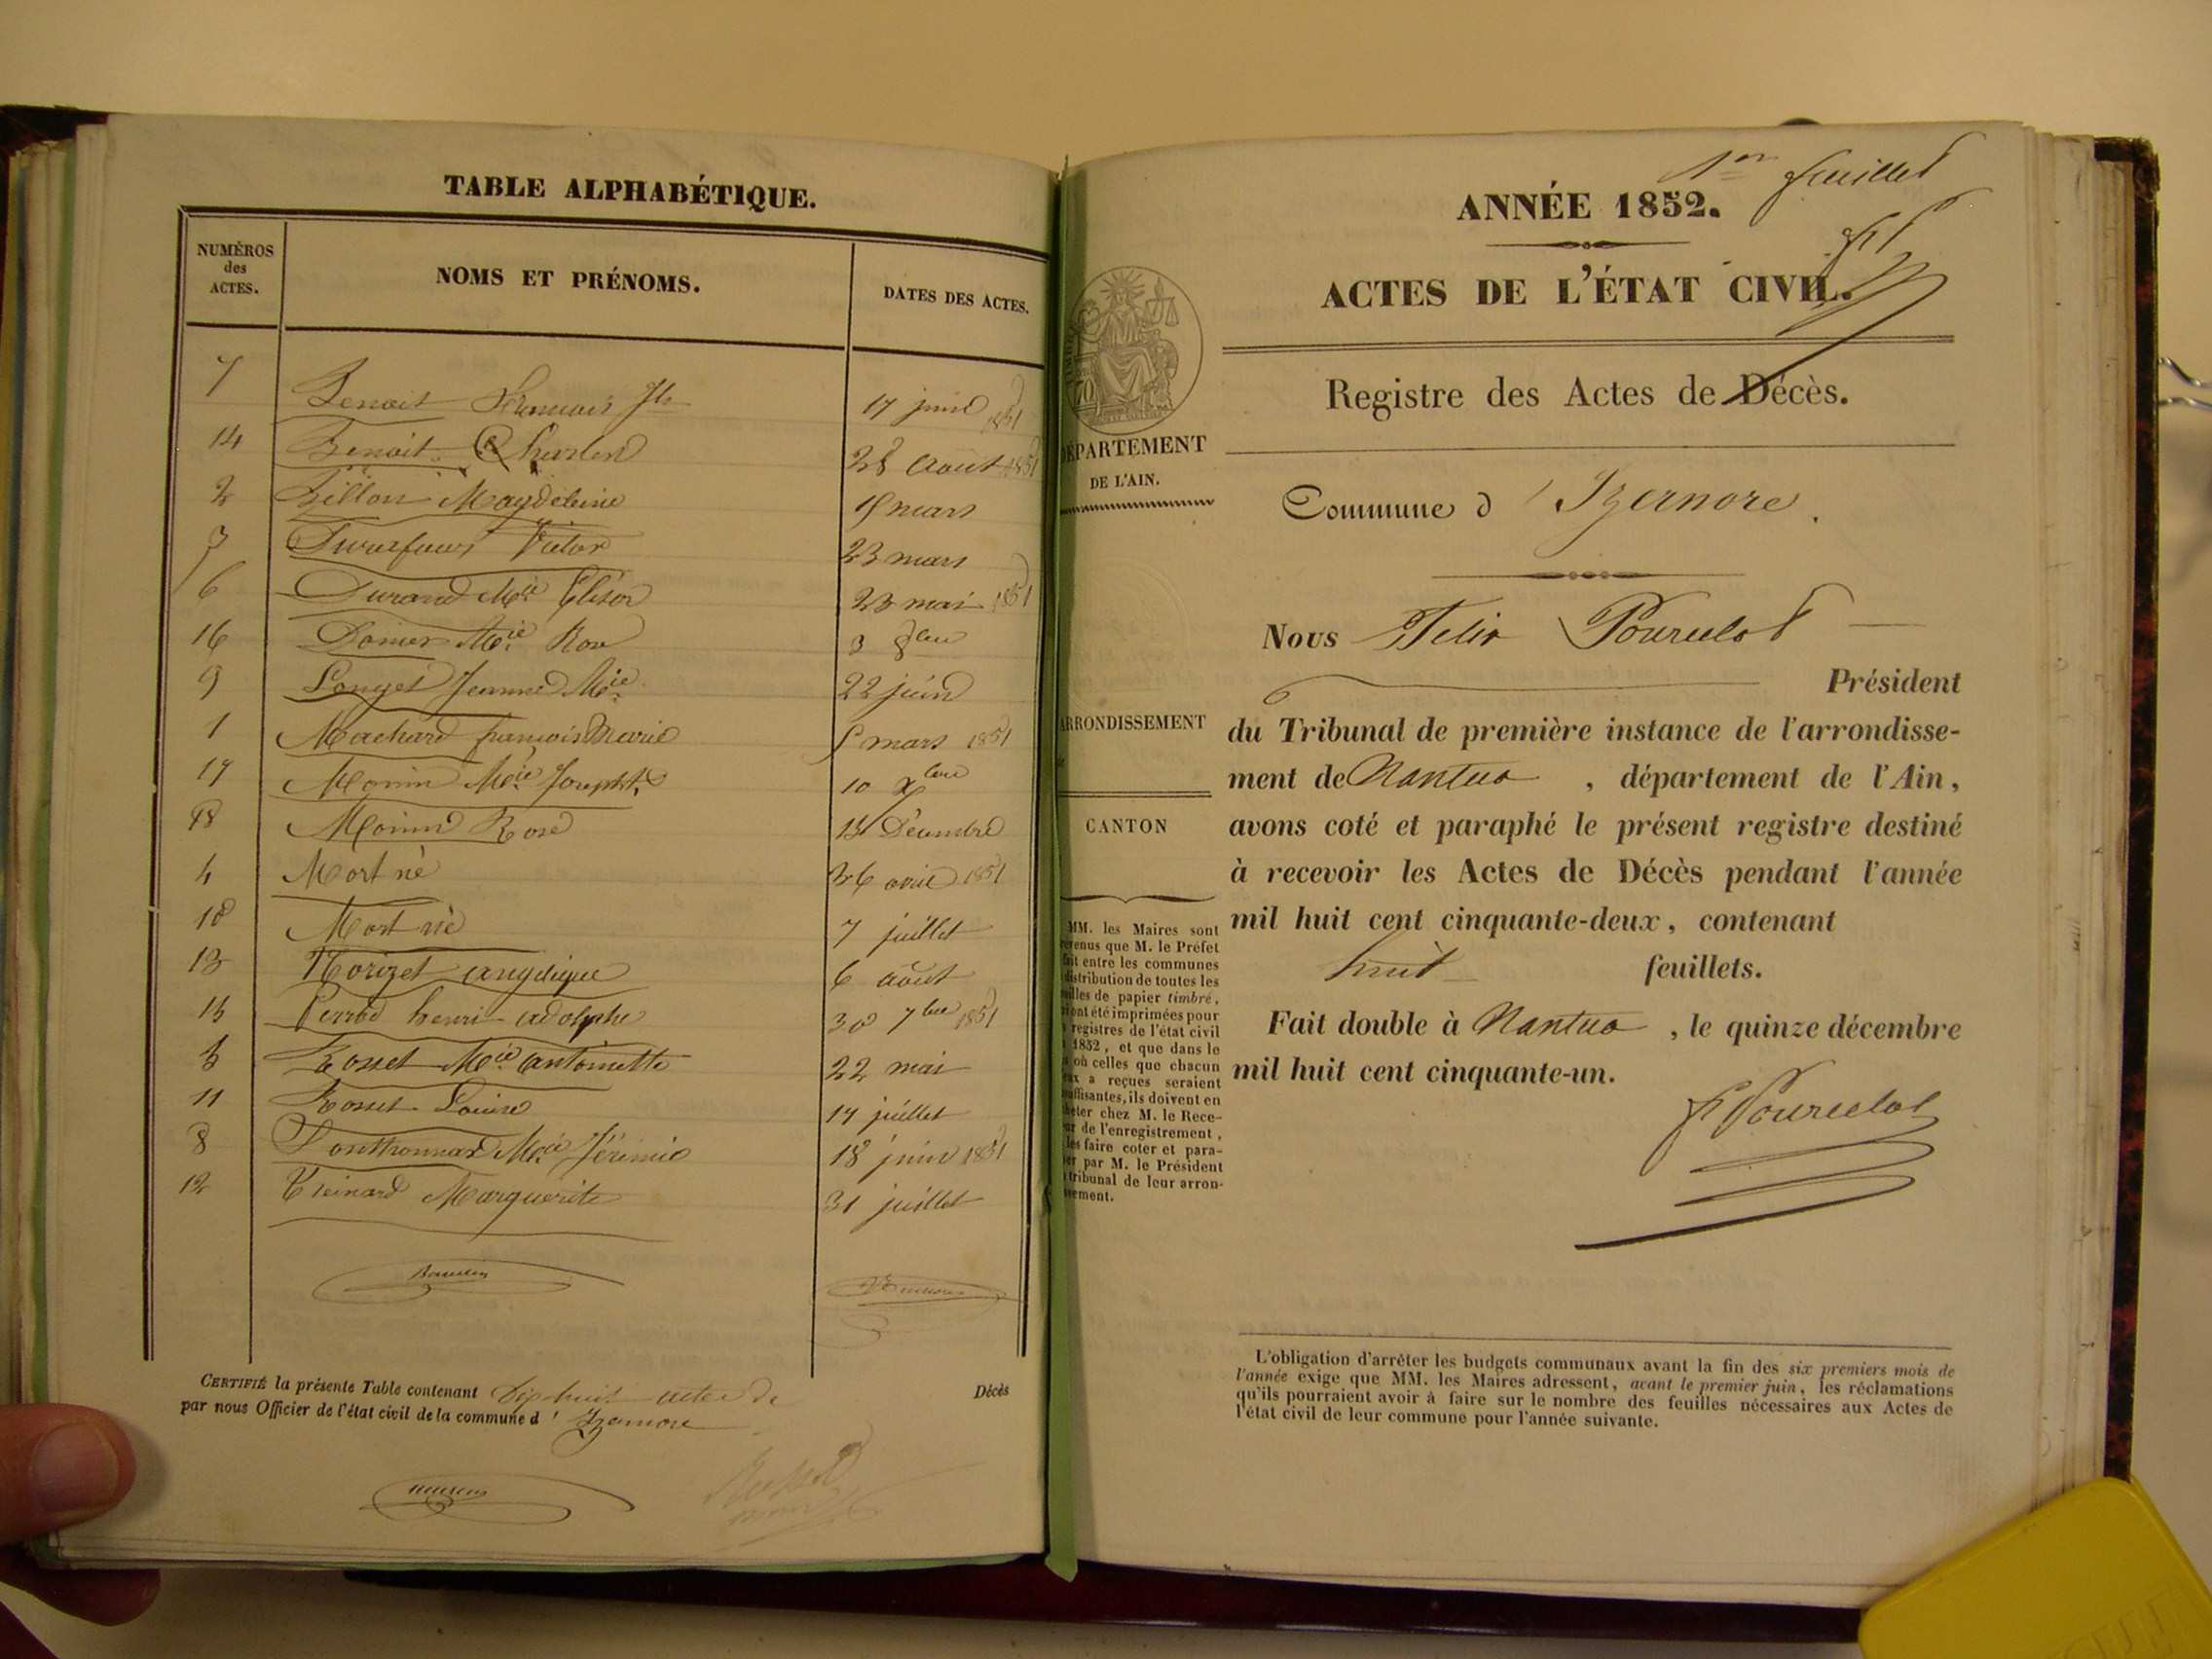 TABLE ALPHABÉTIQUE.
NUMÉROS
des
ACTES.
NOMS ET PRÉNOMS.
DATES DES ACTES.
7 Benoit 17 juin 1851
14 Benoit Charles 28 août 1851
2 Billon Magdeleine mars
3 Victor 23 mars
6 Durand Mie 23 mai 1851
16 Mie Rose 3 8bre
9 Jeanne Mie 22 juin
1 Machard françois Marie mars 1851
17 Monin Mie Josephte 10 Xbre
18 Monin Rose Décembre
4 Mort né 26 avril 1851
10 Mort né 7 juillet
13 angélique 6 août
15 henri adolphe 30 7bre 1851
5 Rosset Mie antoinette 22 mai
11 Rosset Louise 17 juillet
8 Mie 18 juin 1851
12 Marguerite 31 juillet
CERTIFIÉ la présente Table contenant Dix huit actes de Décès
par nous Officier de l'état civil de la commune d' Izernore
1er feuillet
ANNÉE 1852.
ACTES DE L'ÉTAT CIVIL.
Registre des Actes de Décès.
DÉPARTEMENT
DE L'AIN.
Commune d' Izernore.
Nous Félix Pourcelot
Président
ARRONDISSEMENT
du Tribunal de première instance de l'arrondisse-
ment de Nantua, département de l'Ain,
CANTON
avons coté et paraphé le présent registre destiné
à recevoir les Actes de Décès pendant l'année
mil huit cent cinquante-deux, contenant
huit feuillets.
Fait double à Nantua, le quinze décembre
mil huit cent cinquante-un.
F Pourcelot
MM. les Maires sont
venus que M. le Préfet
fait entre les communes
distribution de toutes les
illes de papier timbré,
ont été imprimées pour
registres de l'état civil
1852, et que dans le
où celles que chacun
a reçues seraient
uffisantes, ils doivent en
heter chez M. le Rece-
r de l'enregistrement,
les faire coter et para-
er par M. le Président
tribunal de leur arron-
sement.
L'obligation d'arrêter les budgets communaux avant la fin des six premiers mois de
l'année exige que MM. les Maires adressent, avant le premier juin, les réclamations
qu'ils pourraient avoir à faire sur le nombre des feuilles nécessaires aux Actes de
l'état civil de leur commune pour l'année suivante.